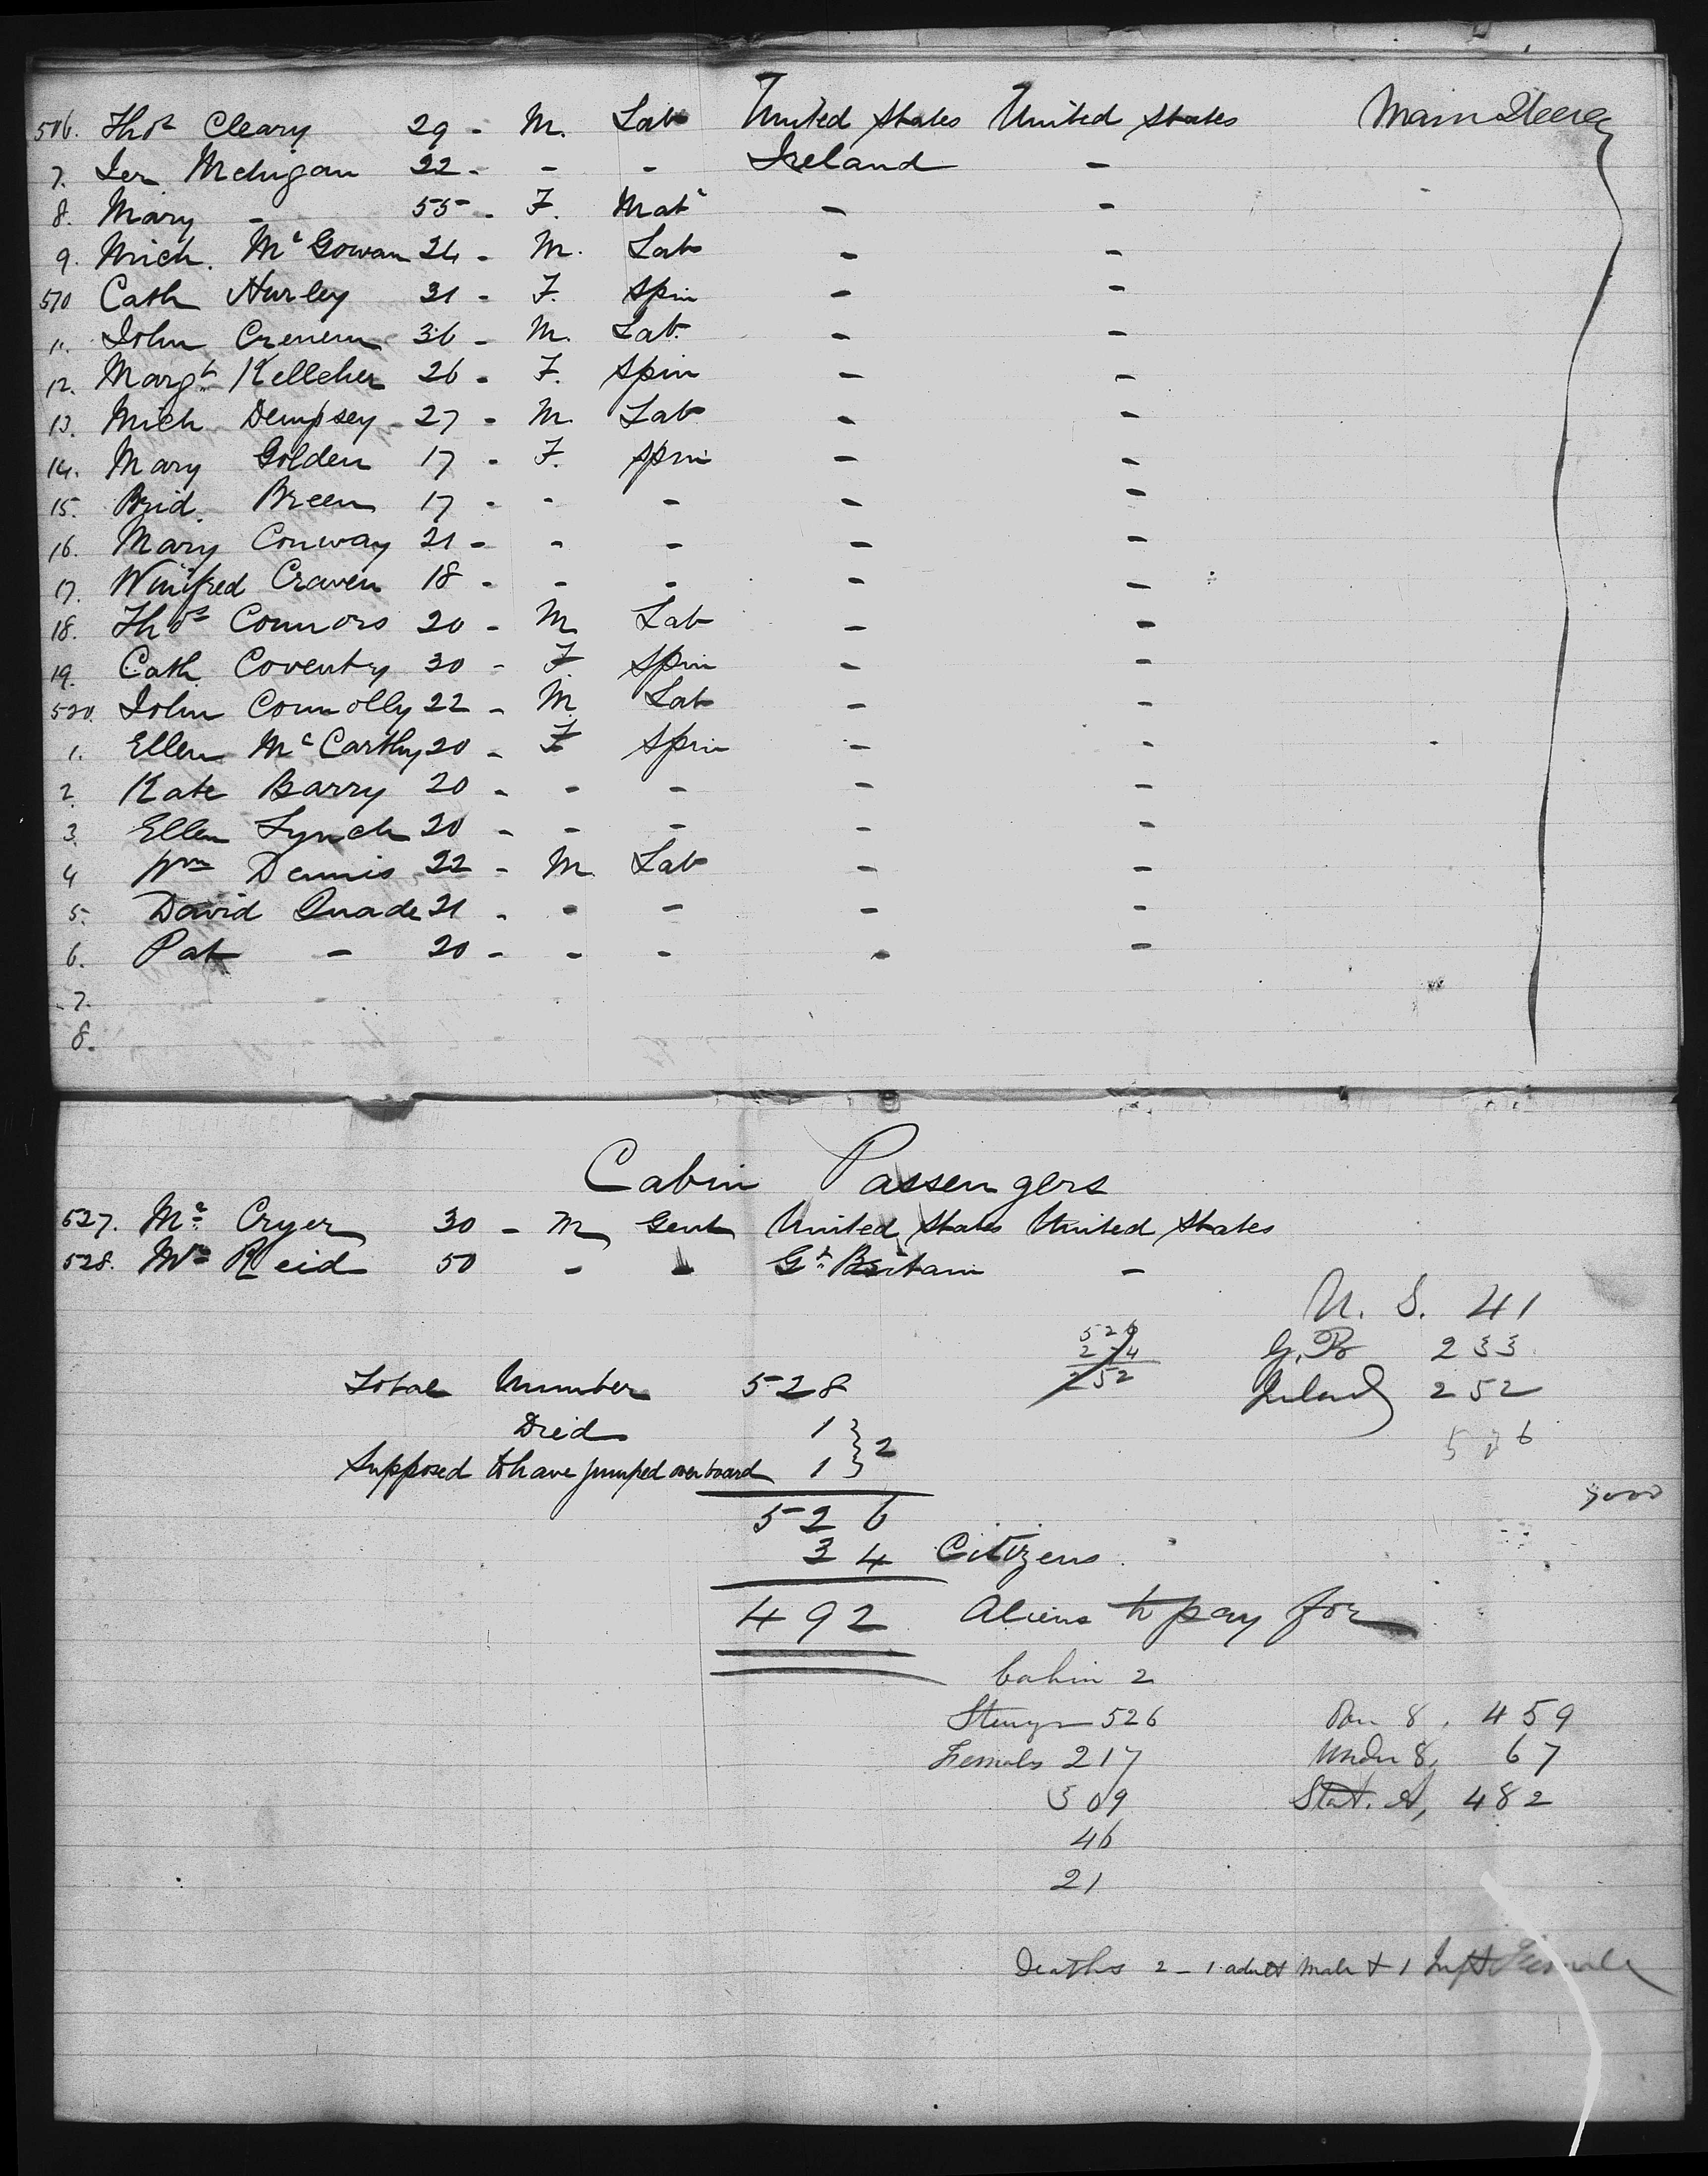 506. Thos Cleary 29 - M. Lab United States United States Main Steerage
7. Jer Mehigan 22 - - - Ireland -
8. Mary - 55 - F. Mat - -
9. Mich. McGowan 24 - M. Lab - -
510 Cath Hurley 31 - F. Spin - -
11. John Cremen 36 - M. Lab. - -
12. Margt Kelleher 26 - F. Spin - -
13. Mich Dempsey 27 - M. Lab - -
14. Mary Golden 17 - F. Spin - -
15. Brid. Breen 17 - - - - -
16. Mary Conway 21 - - - - -
17. Winifred Craven 18 - - - - -
18. Thos Connors 20 - M Lab - -
19. Cath. Coventry 30 - F Spin - -
520. John Connolly 22 - M Lab - -
1. Ellen McCarthy 20 - F Spin - -
2. Kate Barry 20 - - - - -
3. Ellen Lynch 20 - - - - -
4 Wm Dennis 22 - M. Lab - -
5. David Quade 21 - - - - -
6. Pat - 20 - - - - -
7.
8.
Cabin Passengers
527. Mr Cryer 30 - M Gent United States United States
528. Mr Reid 50 - " Gt Britain -
U. S. 41
526
274
252
G. B 233
Ireland 252
526
Total Number 528
Died 1 } 2
Supposed to have jumped overboard 1
526
34 Citizens.
492 Aliens to pay for
Cabin 2
Steerage 526 8. 459
Females 217 Under 8, 67
309 Stat. A, 482
46
21
Deaths 2 - 1 adult Male + 1 Inft Female